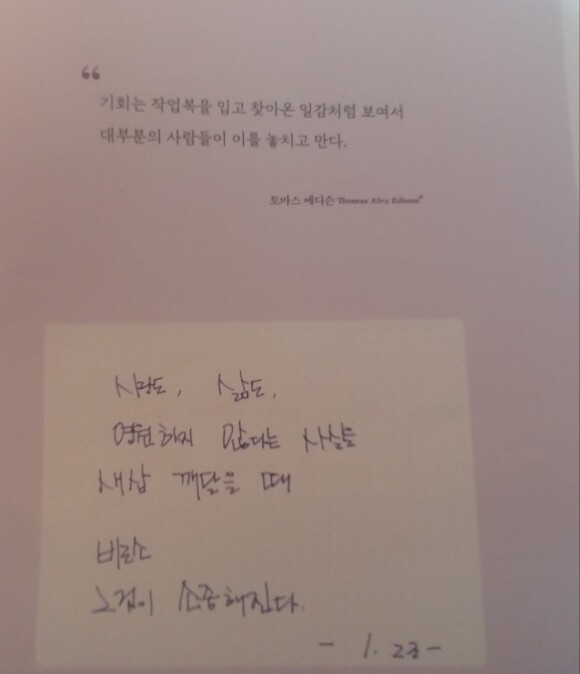 “
기회는 작업복을 입고 찾아온 일감처럼 보여서
대부분의 사람들이 이를 놓치고 만다.
토마스 에디슨 Thomas Alva Edison
사랑도, 삶도,
영원하지 않다는 사실을
새삼 깨달을 때
비로소
그것이 소중해진다.
- 1. 23 -